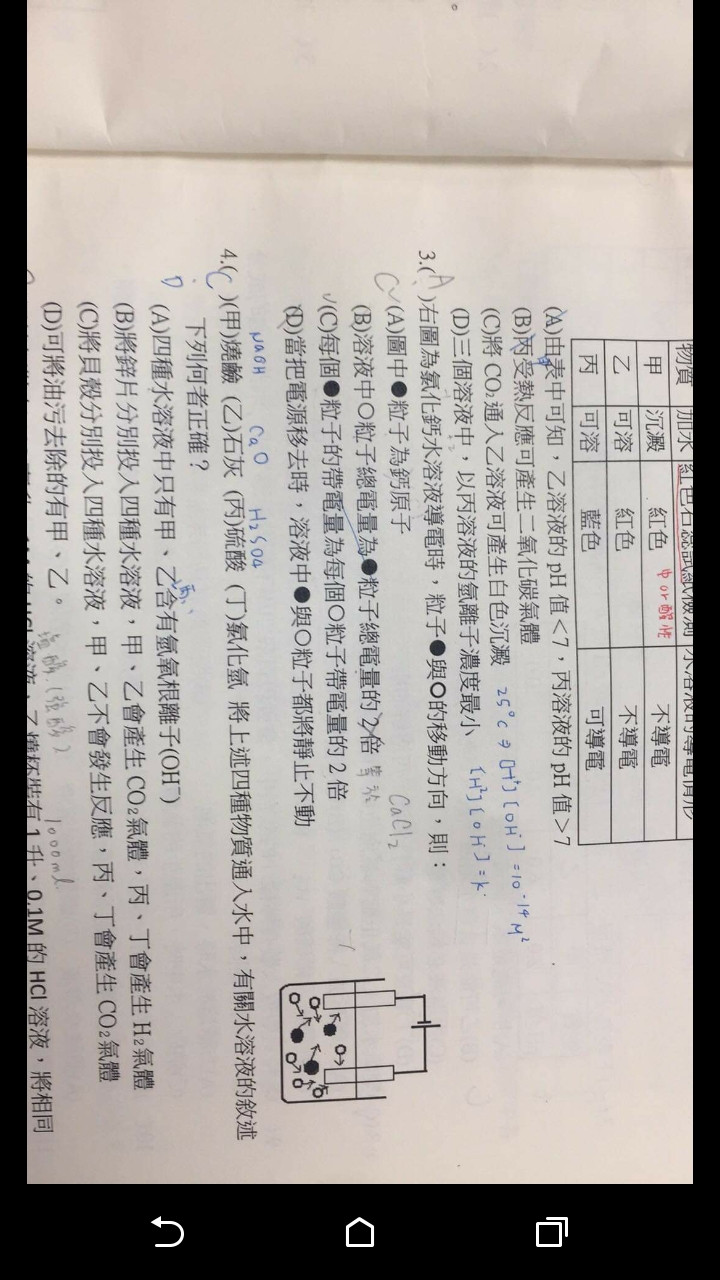 物質 加水 紅色石蕊試紙檢測 水溶液的導電情形
甲 沉澱 紅色 中or酸性 不導電
乙 可溶 紅色 不導電
丙 可溶 藍色 可導電
(A)由表中可知，乙溶液的 pH 值<7，丙溶液的 pH 值>7
(B)丙受熱反應可產生二氧化碳氣體
(C)將 CO₂通入乙溶液可產生白色沉澱
25°C → [H⁺][OH⁻]=10⁻¹⁴M²
(D)三個溶液中，以丙溶液的氫離子濃度最小
[H⁺][OH⁻]=k
3.(A)右圖為氯化鈣水溶液導電時，粒子●與○的移動方向，則：
C (A)圖中●粒子為鈣原子
CaCl₂
(B)溶液中○粒子總電量為●粒子總電量的2倍
(C)每個●粒子的帶電量為每個○粒子帶電量的 2 倍
(D)當把電源移去時，溶液中●與○粒子都將靜止不動
NaOH CaO H₂SO₄
4.(C)(甲)燒鹼 (乙)石灰 (丙)硫酸 (丁)氯化氫 將上述四種物質通入水中，有關水溶液的敘述
D 下列何者正確？
(A)四種水溶液中只有甲、乙含有氫氧根離子(OH⁻)
(B)將鋅片分別投入四種水溶液，甲、乙會產生 CO₂氣體，丙、丁會產生 H₂氣體
(C)將貝殼分別投入四種水溶液，甲、乙不會發生反應，丙、丁會產生 CO₂氣體
(D)可將油污去除的有甲、乙。
1000ml
HCl 溶液，乙燒杯裝有 1 升、0.1M 的 HCl 溶液，將相同